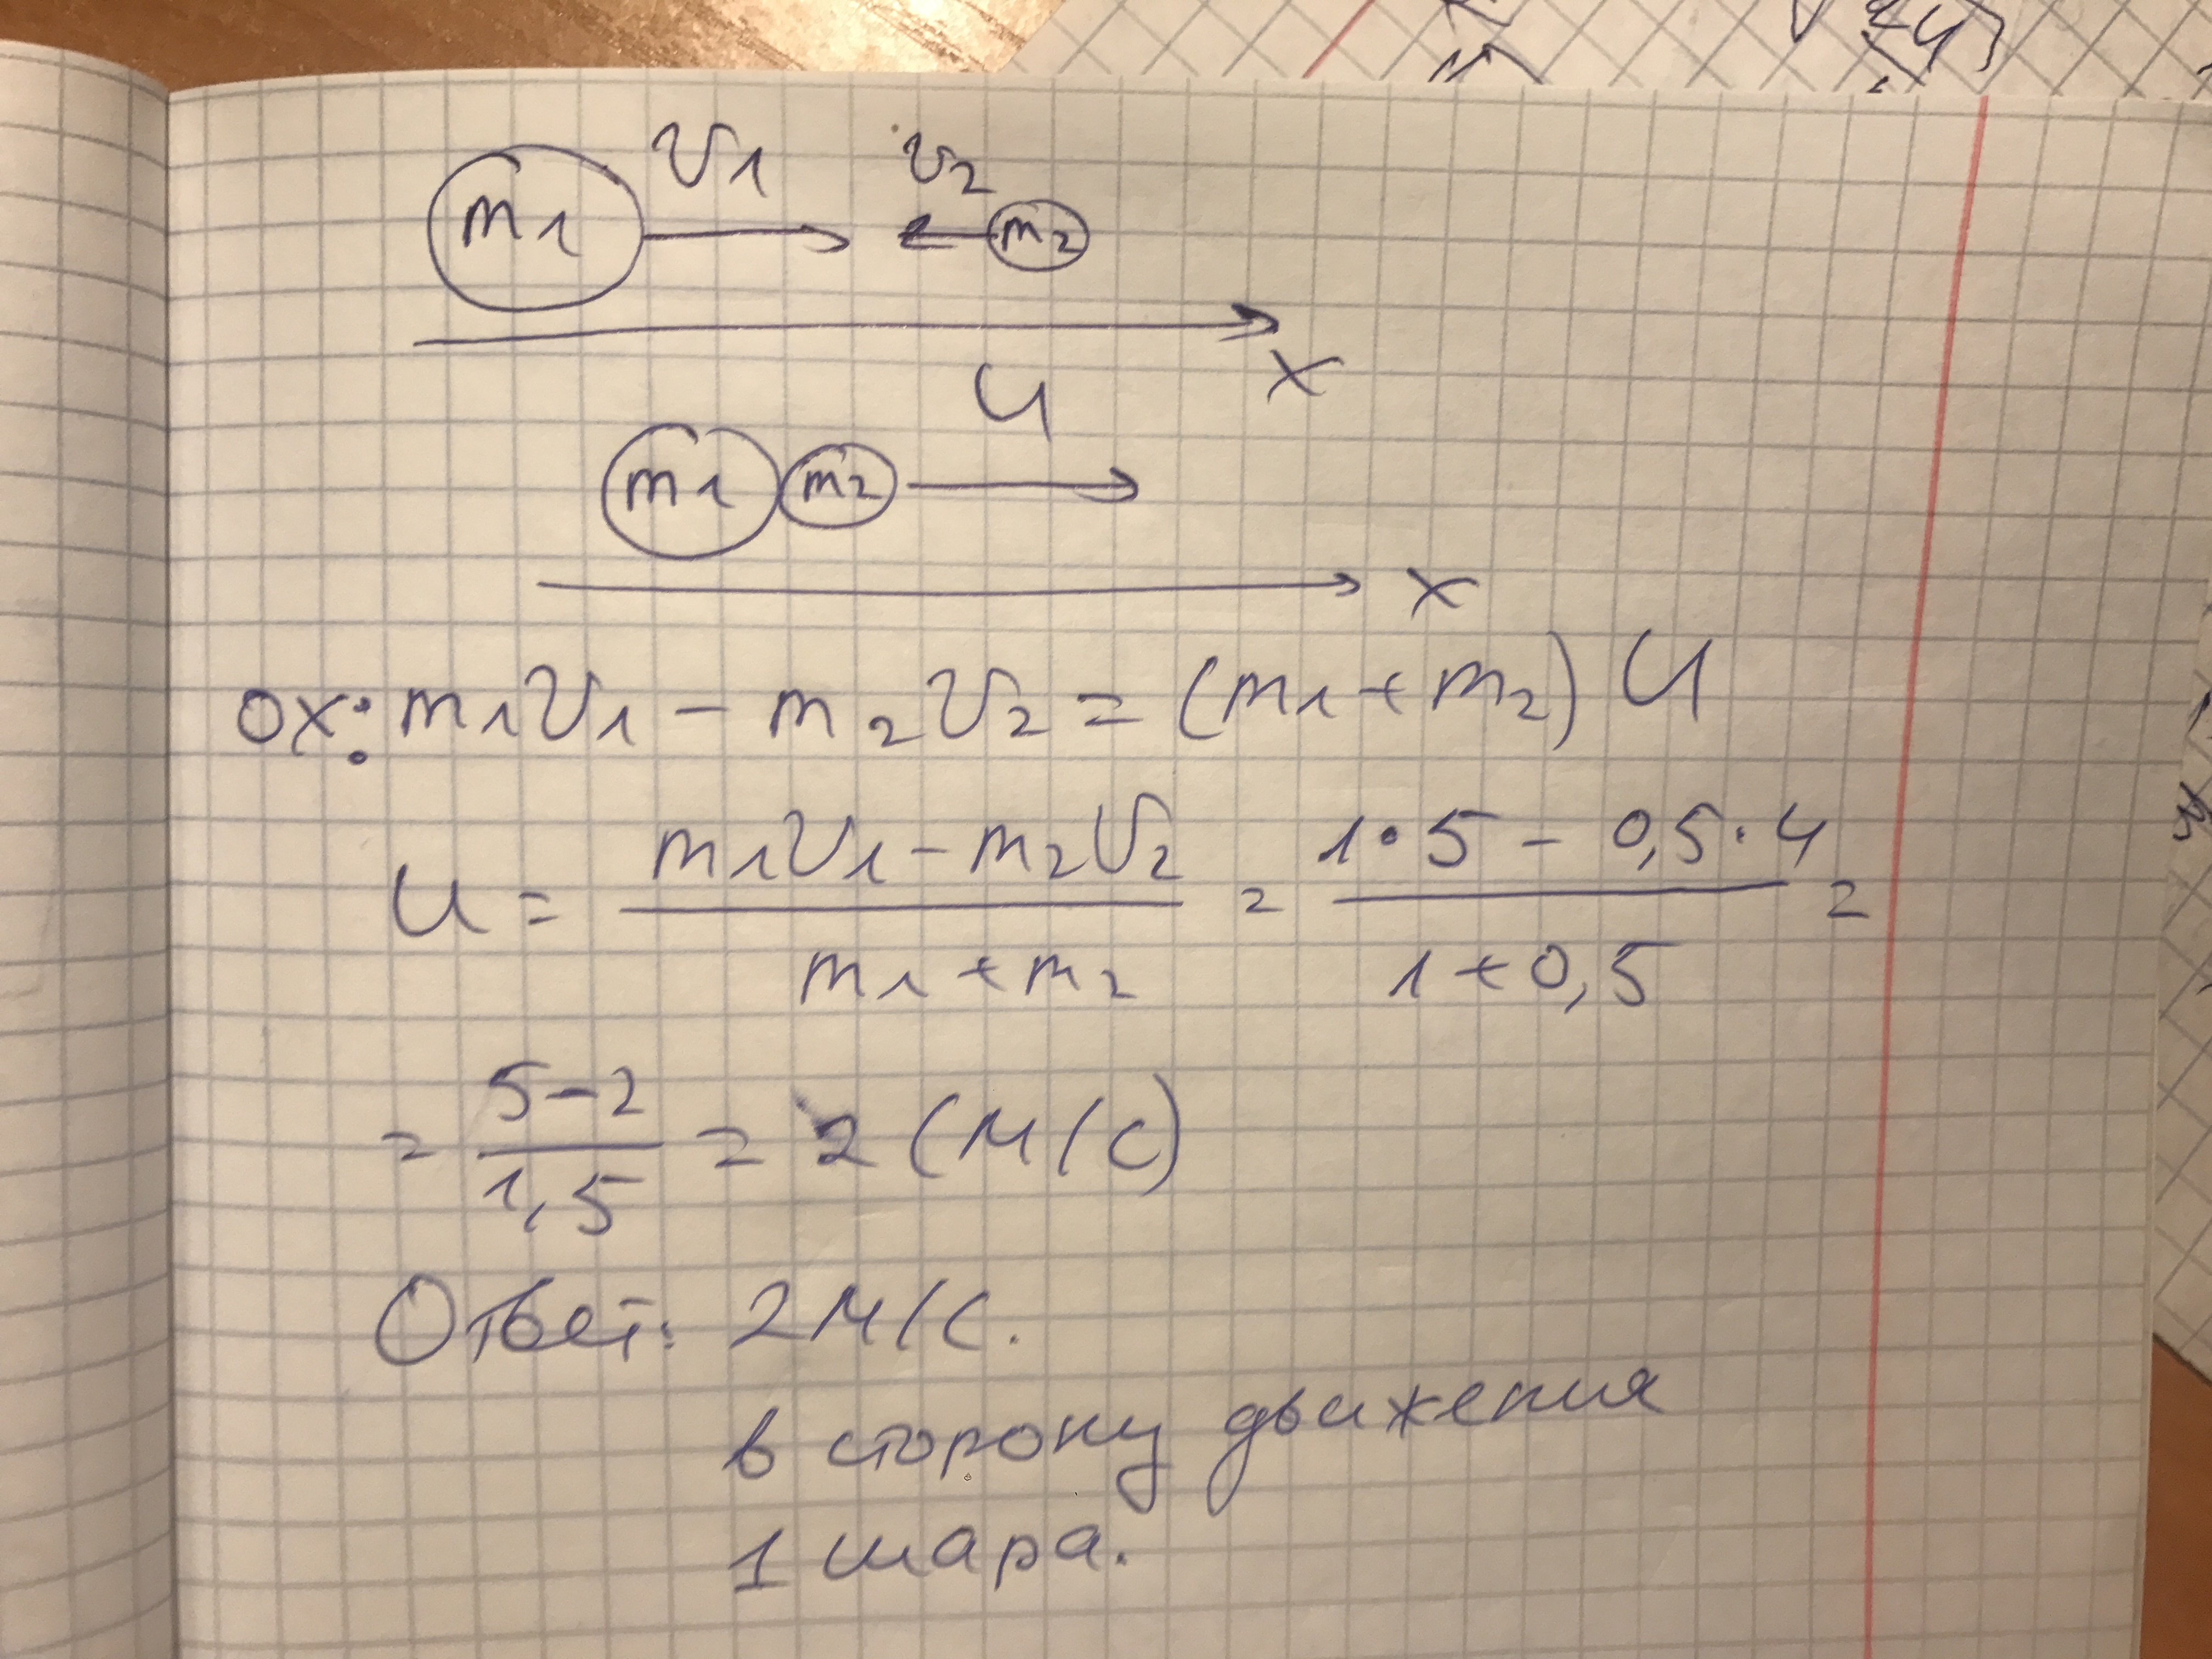 m₁ V₁ V₂ m₂
x
m₁ m₂ U
x
ox: m₁V₁ - m₂V₂ = (m₁ + m₂) U
U = (m₁V₁ - m₂V₂)/(m₁ + m₂) = (1·5 - 0,5·4)/(1 + 0,5) =
= (5 - 2)/(1,5) = 2 (м/с)
Ответ: 2 м/с.
в сторону движения
1 шара.